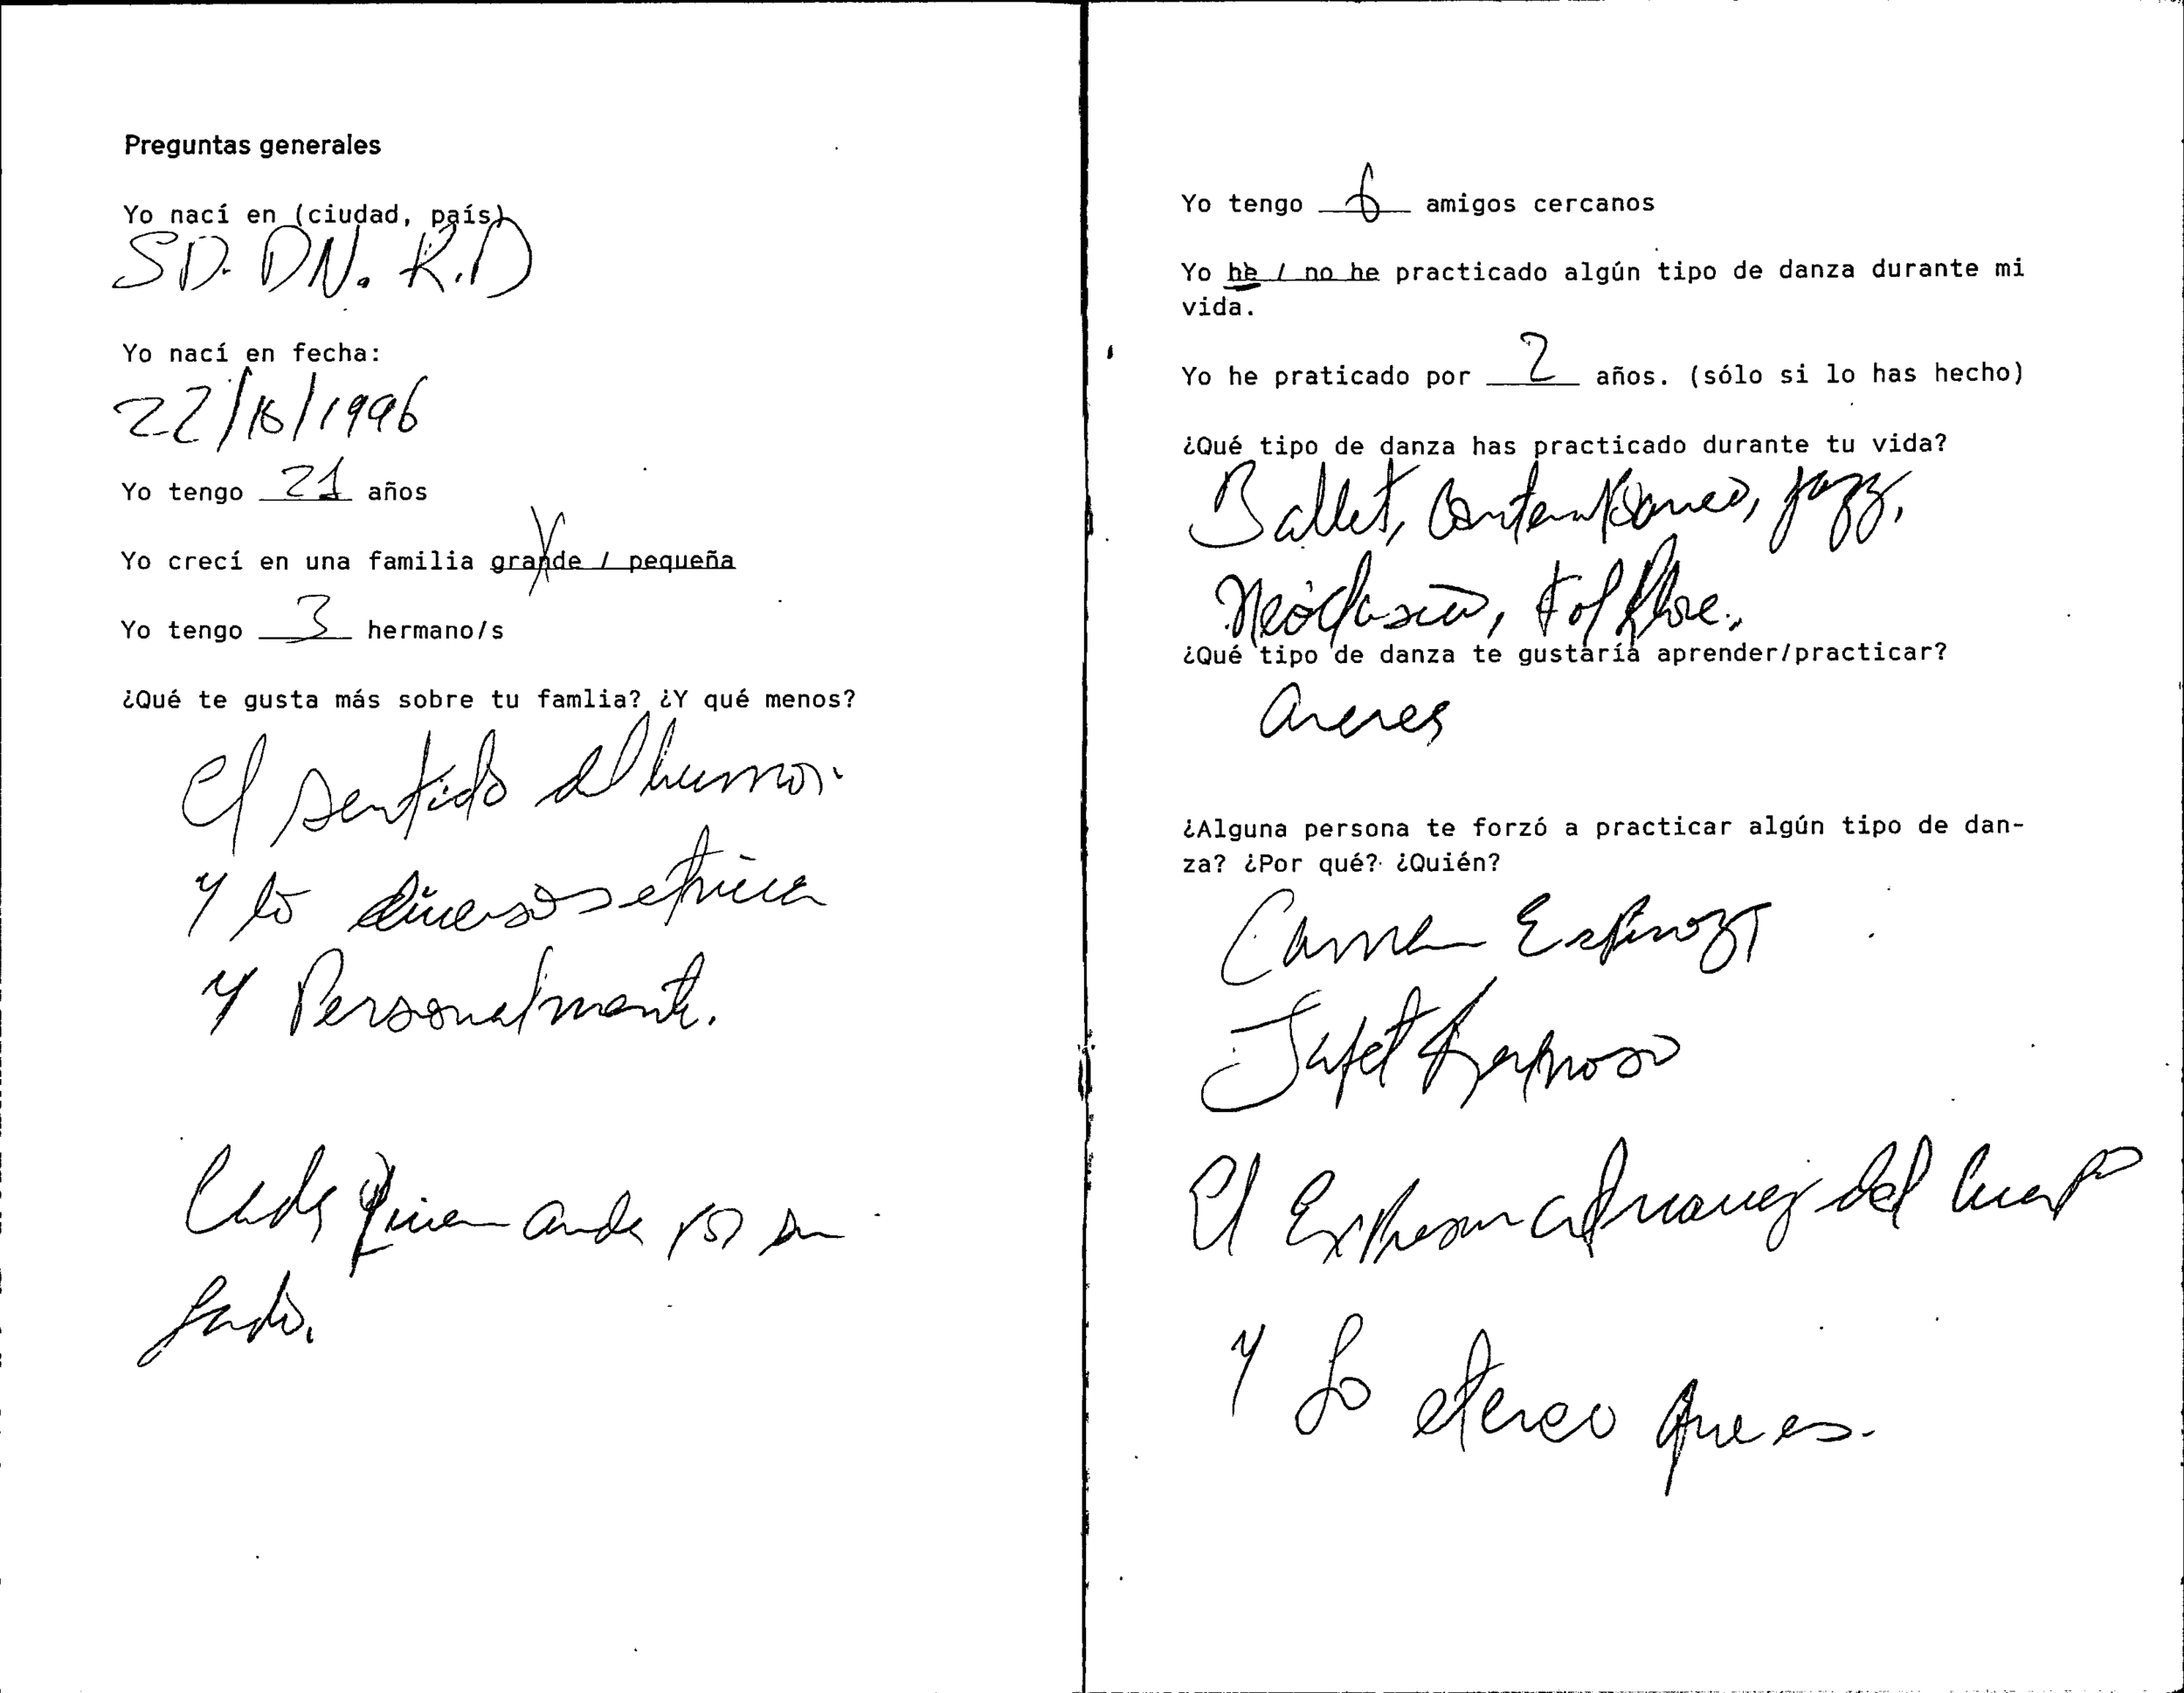 Preguntas generales
Yo nací en (ciudad, país)
SD. DN. R.D
Yo nací en fecha:
22/ /1996
Yo tengo 21 años
Yo crecí en una familia grande / pequeña
Yo tengo 3 hermano/s
¿Qué te gusta más sobre tu famlia? ¿Y qué menos?
El sentido del humor
y lo diversos etnica
y Personalmente.
Cada quien anda por su
lado.
Yo tengo 6 amigos cercanos
Yo he / no he practicado algún tipo de danza durante mi
vida.
Yo he praticado por 2 años. (sólo si lo has hecho)
¿Qué tipo de danza has practicado durante tu vida?
Ballet, Contemporaneo, jazz,
Neoclasico, Folklore.
¿Qué tipo de danza te gustaría aprender/practicar?
¿Alguna persona te forzó a practicar algún tipo de dan-
za? ¿Por qué? ¿Quién?
Carmen Espinoza
Jafet
El Expresar a traves del cuerpo
y Lo etereo que es.